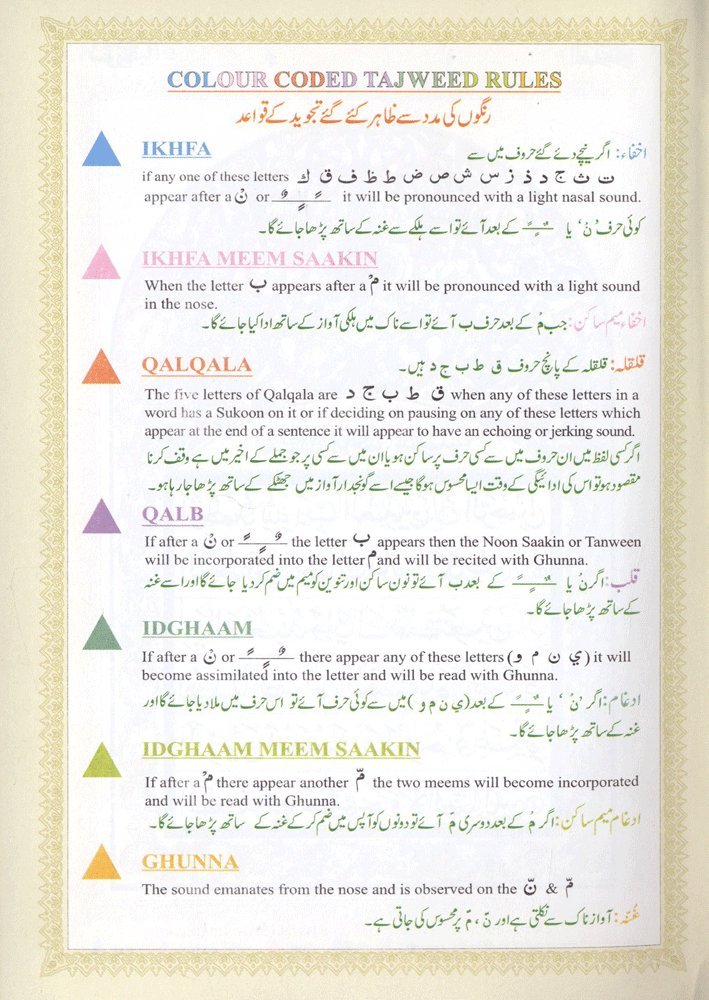 COLOUR CODED TAJWEED RULES
رنگوں کی مدد سے ظاہر کئے گئے تجوید کے قواعد
IKHFA
اخفاء: اگر نیچے دئے گئے حروف میں سے
if any one of these letters ت ث ج د ذ ز س ش ص ض ط ظ ف ق ك
appear after a نْ or ـًـٍـٌ it will be pronounced with a light nasal sound.
کوئی حرف ’نْ‘ یا ـًـٍـٌ کے بعد آئے تو اسے ہلکے سے غنہ کے ساتھ پڑھا جائے گا۔
IKHFA MEEM SAAKIN
When the letter ب appears after a مْ it will be pronounced with a light sound
in the nose.
اخفاء میم ساکن: جب مْ کے بعد حرف ب آئے تو اسے ناک میں ہلکی آواز کے ساتھ ادا کیا جائے گا۔
QALQALA
قلقلہ: قلقلہ کے پانچ حروف ق ط ب ج د ہیں۔
The five letters of Qalqala are ق ط ب ج د when any of these letters in a
word has a Sukoon on it or if deciding on pausing on any of these letters which
appear at the end of a sentence it will appear to have an echoing or jerking sound.
اگر کسی لفظ میں ان حروف میں سے کسی حرف پر ساکن ہو یا ان میں سے کسی پر جو جملے کے اخیر میں ہے وقف کرنا
مقصود ہو تو اس کی ادائیگی کے وقت ایسا محسوس ہوگا جیسے اسے گونجدار آواز میں جھٹکے کے ساتھ پڑھا جا رہا ہو۔
QALB
If after a نْ or ـًـٍـٌ the letter ب appears then the Noon Saakin or Tanween
will be incorporated into the letter م and will be recited with Ghunna.
قلب: اگر نْ یا ـًـٍـٌ کے بعد ب آئے تو نون ساکن اور تنوین کو میم میں ضم کر دیا جائے گا اور اسے غنہ
کے ساتھ پڑھا جائے گا۔
IDGHAAM
If after a نْ or ـًـٍـٌ there appear any of these letters (ي ن م و) it will
become assimilated into the letter and will be read with Ghunna.
ادغام: اگر ’نْ‘ یا ـًـٍـٌ کے بعد (ي ن م و) میں سے کوئی حرف آئے تو اس حرف میں ملا دیا جائے گا اور
غنہ کے ساتھ پڑھا جائے گا۔
IDGHAAM MEEM SAAKIN
If after a مْ there appear another مّ the two meems will become incorporated
and will be read with Ghunna.
ادغام میم ساکن: اگر مْ کے بعد دوسری مّ آئے تو دونوں کو آپس میں ضم کر کے غنہ کے ساتھ پڑھا جائے گا۔
GHUNNA
The sound emanates from the nose and is observed on the نّ & مّ
غُنّہ: آواز ناک سے نکلتی ہے اور نّ ، مّ پر محسوس کی جاتی ہے۔